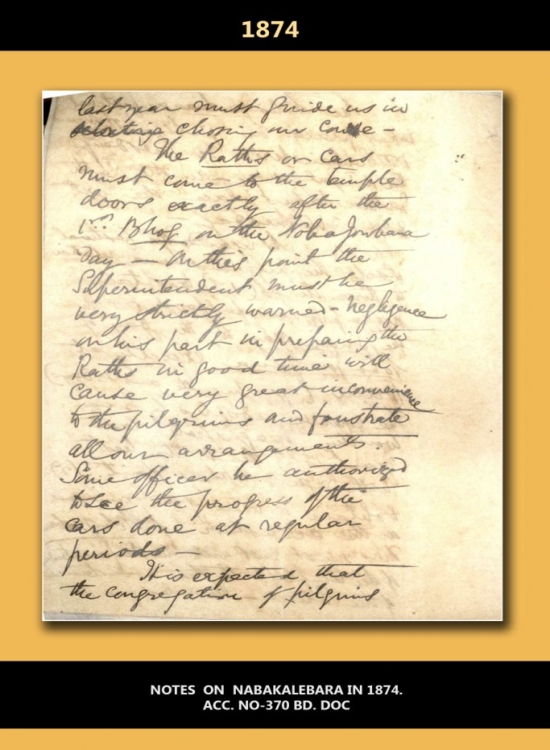 1874
last year must guide us in
choosing our course –
The Raths or cars
must come to the temple
doors exactly after the
1st Bhog on the Noba Joubana
day – On this point the
Superintendent must be
very strictly warned – Negligence
on his part in preparing the
Raths in good time will
cause very great inconvenience
to the pilgrims and frustrate
all our arrangements.
Some officer be authorized
to see the progress of the
cars done at regular
periods –
It is expected that
the congregation of pilgrims
NOTES ON NABAKALEBARA IN 1874.
ACC. NO-370 BD. DOC